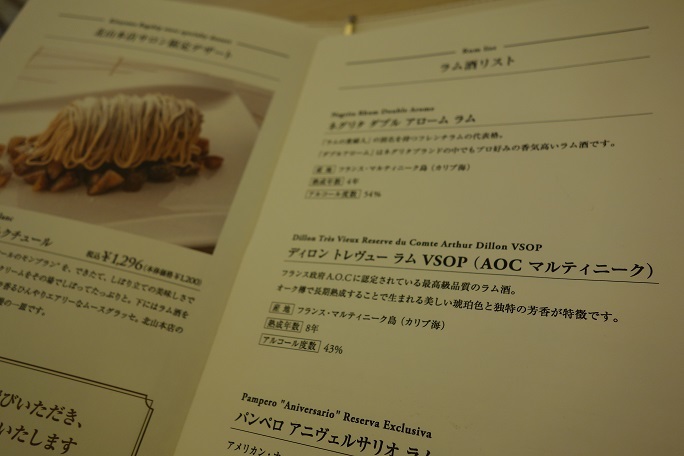 Kitayama flagship store specialty dessert
北山本店サロン限定デザート
クチュール
税込￥1,296(本体価格￥1,200)
ールのモンブラン"を、できたて、しぼり立ての美味しさで
クリームをその場でしぼってたっぷりと。下にはラム酒を
香るひんやりエアリーなムースグラッセ。北山本店の
の一皿です。
びいただき、
いたします
Rum list
ラム酒リスト
Negrita Rhum Double Aroma
ネグリタ ダブル アローム ラム
の別名を持つフレンチラムの代表格。
「ダブルアローム」はネグリタブランドの中でもプロ好みの香気高いラム酒です。
産 地 フランス・マルティニーク島（カリブ海）
熟成年数 4年
アルコール度数 54%
Dillon Très Vieux Reserve du Comte Arthur Dillon VSOP
ディロン トレヴュー ラム VSOP（AOC マルティニーク）
フランス政府A.O.Cに認定されている最高級品質のラム酒。
オーク樽で長期熟成することで生まれる美しい琥珀色と独特の芳香が特徴です。
産 地 フランス・マルティニーク島（カリブ海）
熟成年数 8年
アルコール度数 43%
Pampero "Aniversario" Reserva Exclusiva
パンペロ アニヴェルサリオ ラム
アメリカン・